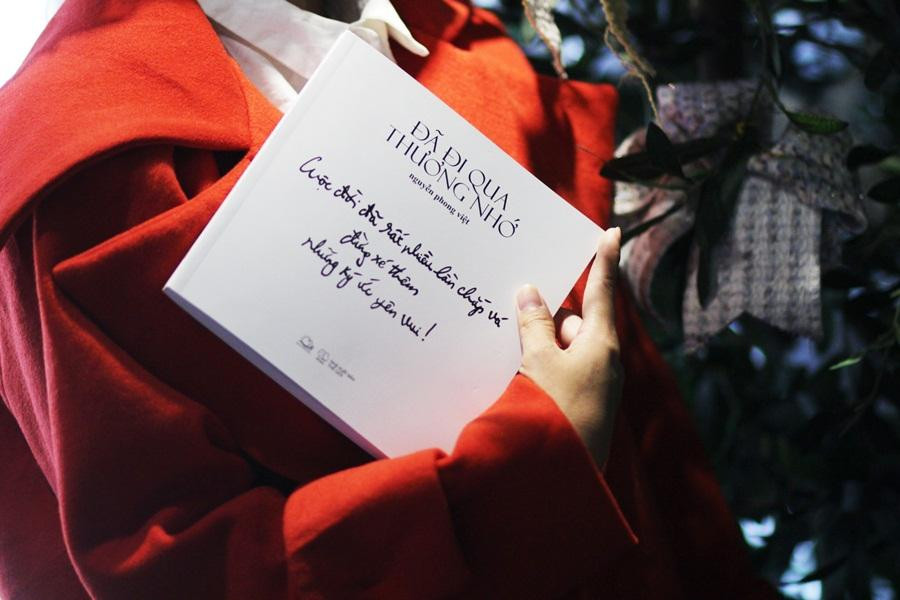 ĐÃ ĐI QUA
THƯƠNG NHỚ
nguyễn phong việt
Cuộc đời đã rất nhiều lần chắp vá
đừng xé thêm
những ký ức yên vui!